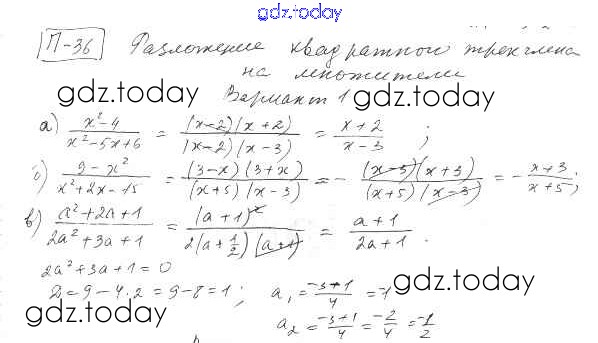 gdz.today
П-36 Разложение квадратного трехчлена
на множители
gdz.today gdz.today
Вариант 1
а) (x²-4)/(x²-5x+6) = ((x-2)(x+2))/((x-2)(x-3)) = (x+2)/(x-3) ;
б) (9-x²)/(x²+2x-15) = ((3-x)(3+x))/((x+5)(x-3)) = - ((x-3)(x+3))/((x+5)(x-3)) = - (x+3)/(x+5) ;
в) (a²+2a+1)/(2a²+3a+1) = (a+1)²/(2(a+1/2)(a+1)) = (a+1)/(2a+1) .
2a²+3a+1=0
gdz.today
D=9-4·2=9-8=1; a₁=(-3-1)/4=-1
gdz.today
a₂=(-3+1)/4=-2/4=-1/2